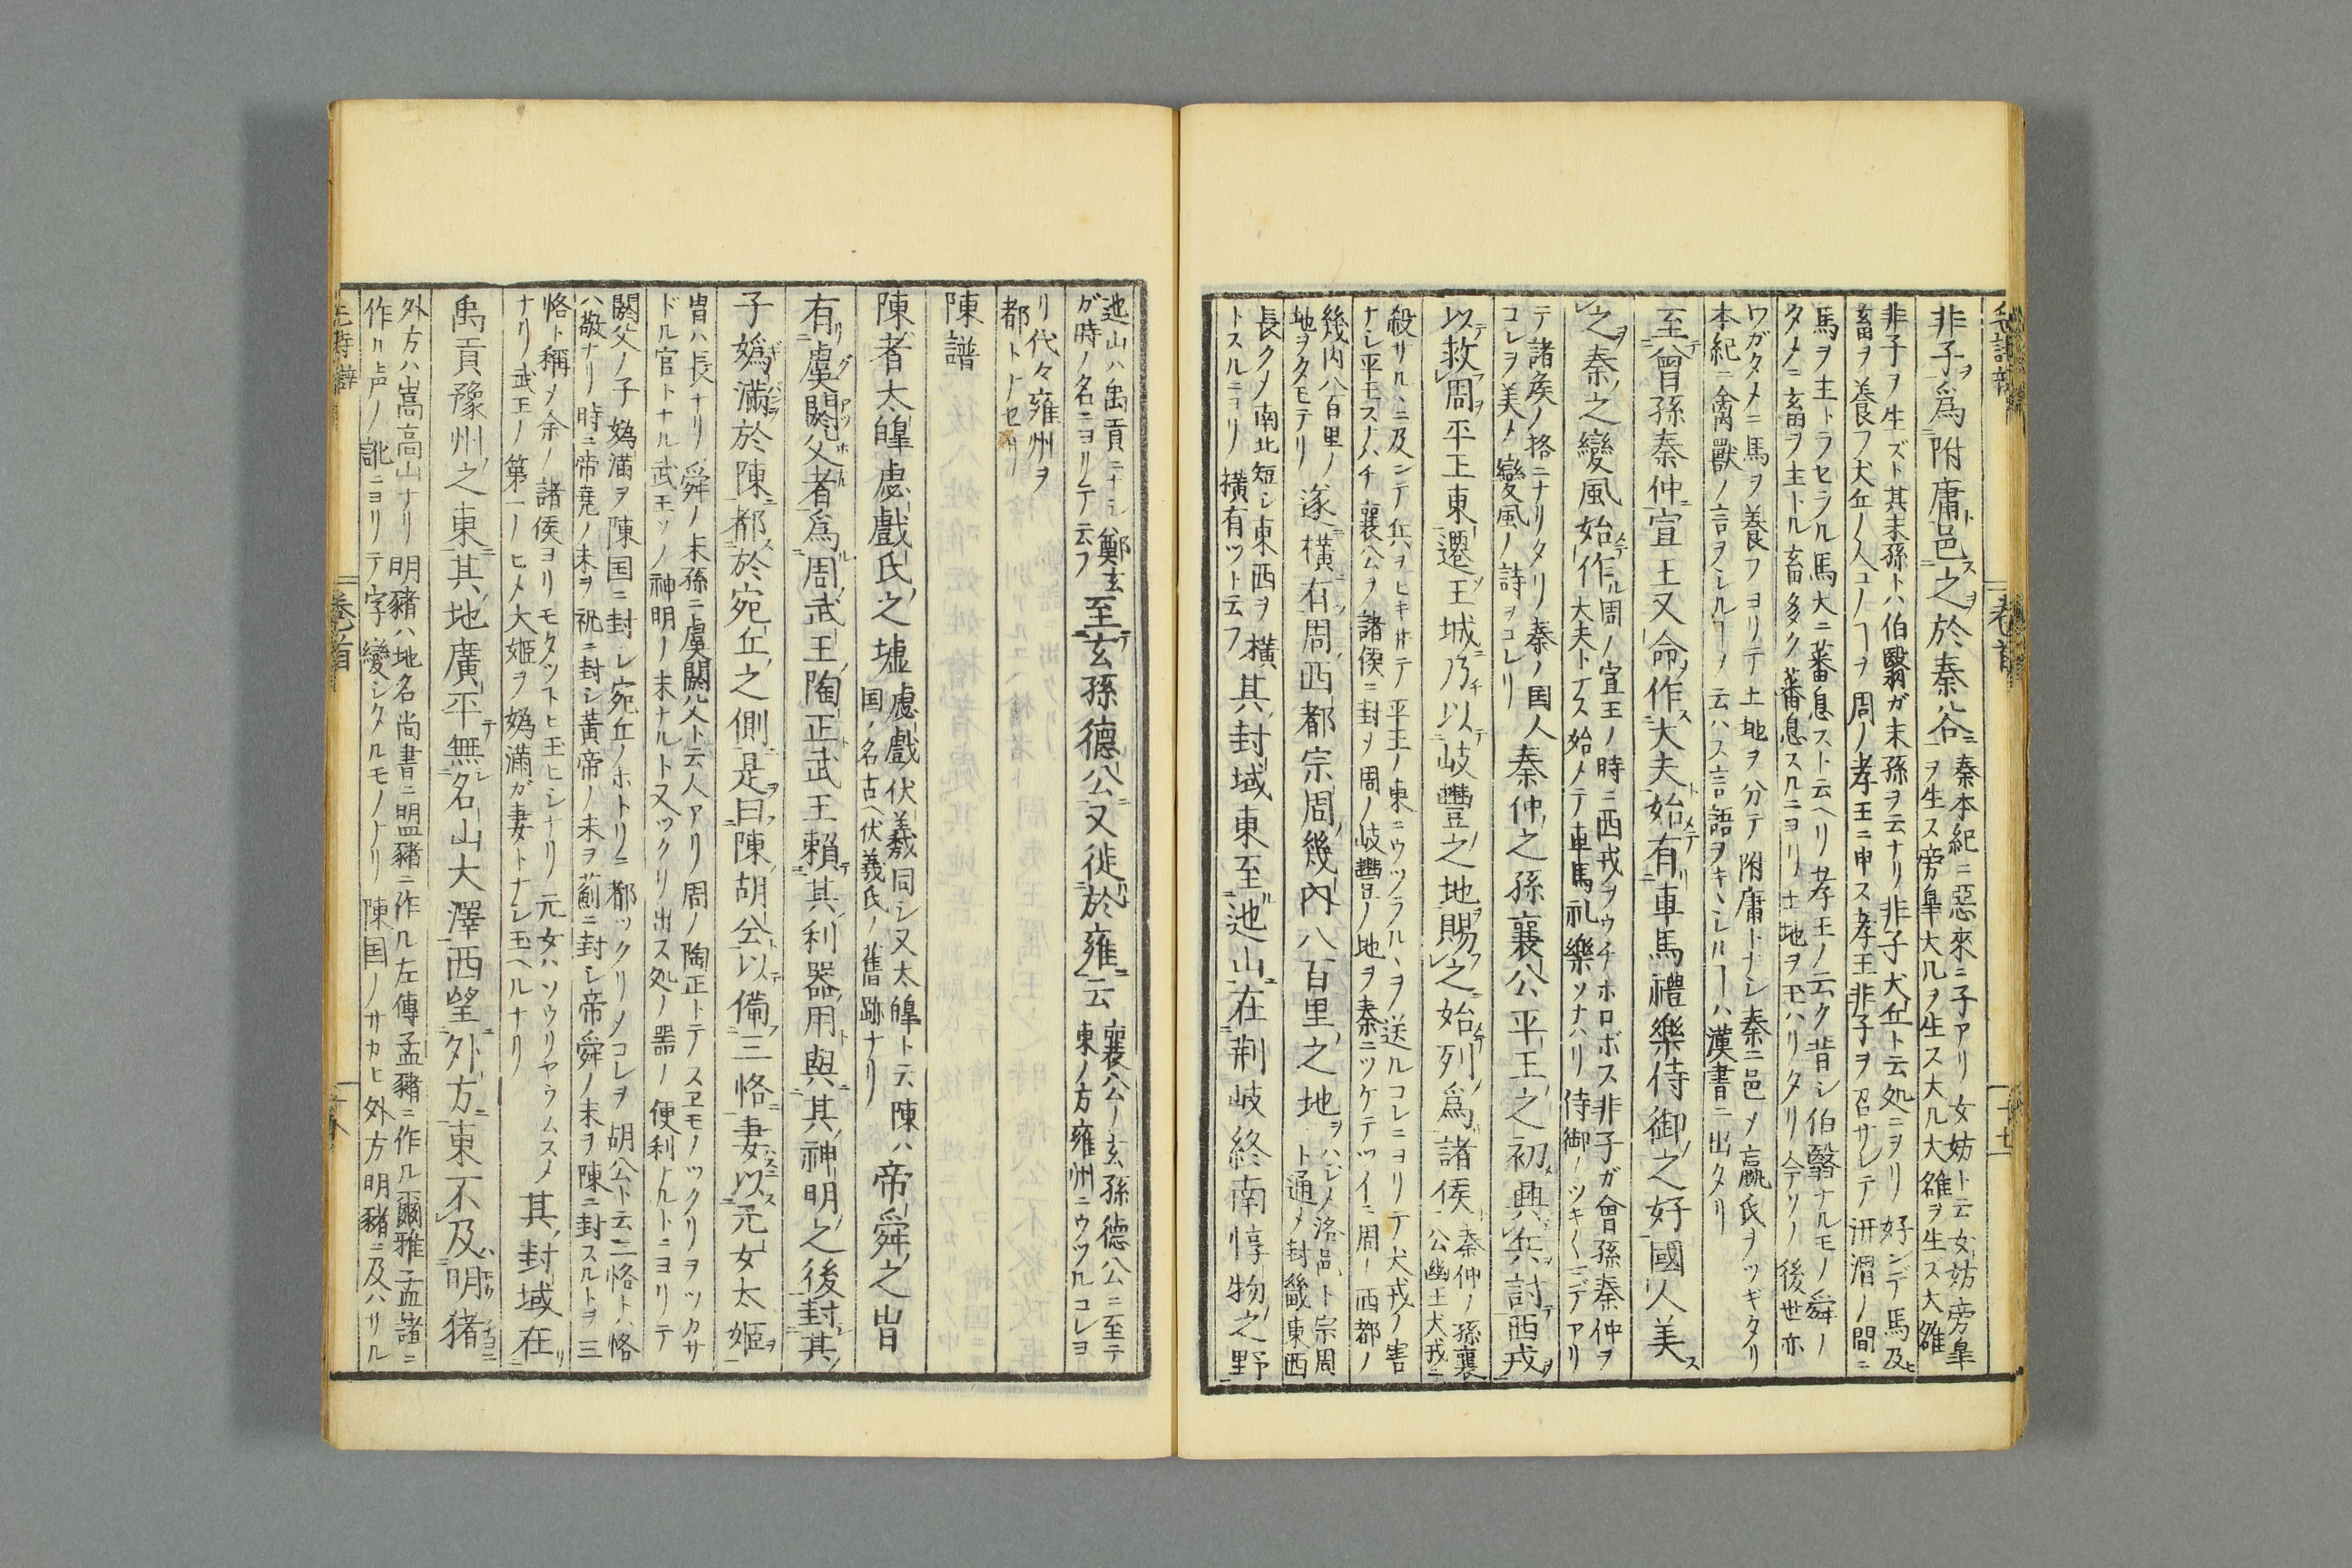 非子爲附庸邑之於秦谷 秦本紀ニ惡來ニ子アリ女妨ト云女妨旁皐
ヲ生ス旁皐大几ヲ生ス大几大雒ヲ生ス大雒
非子ヲ生ズト其末孫トハ伯翳ガ末孫ヲ云ナリ非子犬丘ト云処ニヲリ好ンデ馬及ヒ
畜ヲ養フ犬丘ノ人コノヿヲ周ノ孝王ニ申ス孝王非子ヲ召サレテ汧渭ノ間ニ
馬ヲ主トラセラル馬大ニ蕃息スト云ヘリ孝王ノ云ク昔シ伯翳ナルモノ舜ノ
タメニ畜ヲ主トル畜多ク蕃息スルニヨリ土地ヲ玉ハリタリ今ソノ後世亦
ワガタメニ馬ヲ養フヨリテ土地ヲ分テ附庸トナシ秦ニ邑メ嬴氏ヲツギタリ
本紀ニ禽獸ノ言ヲシルヿヲ云ハス言語ヲキヽシルヿハ漢書ニ出タリ
至曾孫秦仲宣王又命作大夫始有車馬禮樂侍御之好國人美
之秦之變風始作 周ノ宣王ノ時ニ西戎ヲウチホロボス非子ガ曾孫秦仲ヲ
大夫トナス始メテ車馬礼樂ソナハリ侍御ノツキ〱ニデアリ
テ諸矦ノ格ニナリタリ秦ノ国人
コレヲ美メ變風ノ詩ヲコレリ 秦仲之孫襄公平王之初興兵討西戎
以救周平王東遷王城乃以岐豐之地賜之始列爲諸侯 秦仲ノ孫襄
公幽王犬戎ニ
殺サルヽニ及ンデ兵ヲヒキ井テ平王ノ東ニウツラルヽヲ送ルコレニヨリテ犬戎ノ害
ナシ平王スナハチ襄公ヲ諸侯ニ封ヲ周ノ岐豐ノ地ヲ秦ニツケテツイニ周ノ西都ノ
幾内八百里ノ
地ヲタモテリ 遂橫有周西都宗周幾内八百里之地 ハジメ洛邑ト宗周
ト通メ封畿東西
長クメ南北短シ東西ヲ橫
トスルニヨリ橫有ツト云フ 其封域東至迆山在荆岐終南惇物之野
迆山ハ禹貢ニナシ鄭玄
ガ時ノ名ニヨリテ云フ 至玄孫德公又徙於雍云 襄公ノ玄孫德公ニ至テ
東ノ方雍州ニウツルコレヨ
リ代々雍州ヲ
都トナセリ
陳譜
陳者太皥虙戲氏之墟 虙戲ノ伏羲同シ又太皥ト云陳ハ
国ノ名古ヘ伏羲氏ノ舊跡ナリ 帝舜之冑
有虞閼父者爲周武王陶正武王賴其利器用與其神明之後封其
子嬀滿於陳都於宛丘之側是曰陳胡公以備三恪妻以元女太姬
冑ハ長ナリ舜ノ末孫ニ虞閼父ト云人アリ周ノ陶正トテスヱモノツクリヲツカサ
ドル官トナル武王ソノ神明ノ末ナルト又ツクリ出ス処ノ噐ノ便利ナルトニヨリテ
閼父ノ子嬀滿ヲ陳国ニ封レ宛丘ノホトリニ都ツクリメコレヲ胡公ト云三恪トハ恪
ハ敬ナリ時ニ帝堯ノ末ヲ祝ニ封シ黄帝ノ末ヲ薊ニ封シ帝舜ノ末ヲ陳ニ封スルトヲ三
恪ト稱メ余ノ諸侯ヨリモタツトヒ玉ヒシナリ元女ハソウリヤウムスメ
ナリ武王ノ第一ノヒメ大姬ヲ嬀滿ガ妻トナシ玉ヘルナリ 其封域在
禹貢豫州之東其地廣平無名山大澤西望外方東不及明猪
外方ハ嵩高山ナリ明豬ハ地名尚書ニ盟豬ニ作ル左傳孟豬ニ作ル爾雅孟諸ニ
作ル声ノ訛ニヨリテ字變シタルモノナリ陳国ノサカヒ外方明豬ニ及ハサル
卷首
卷首